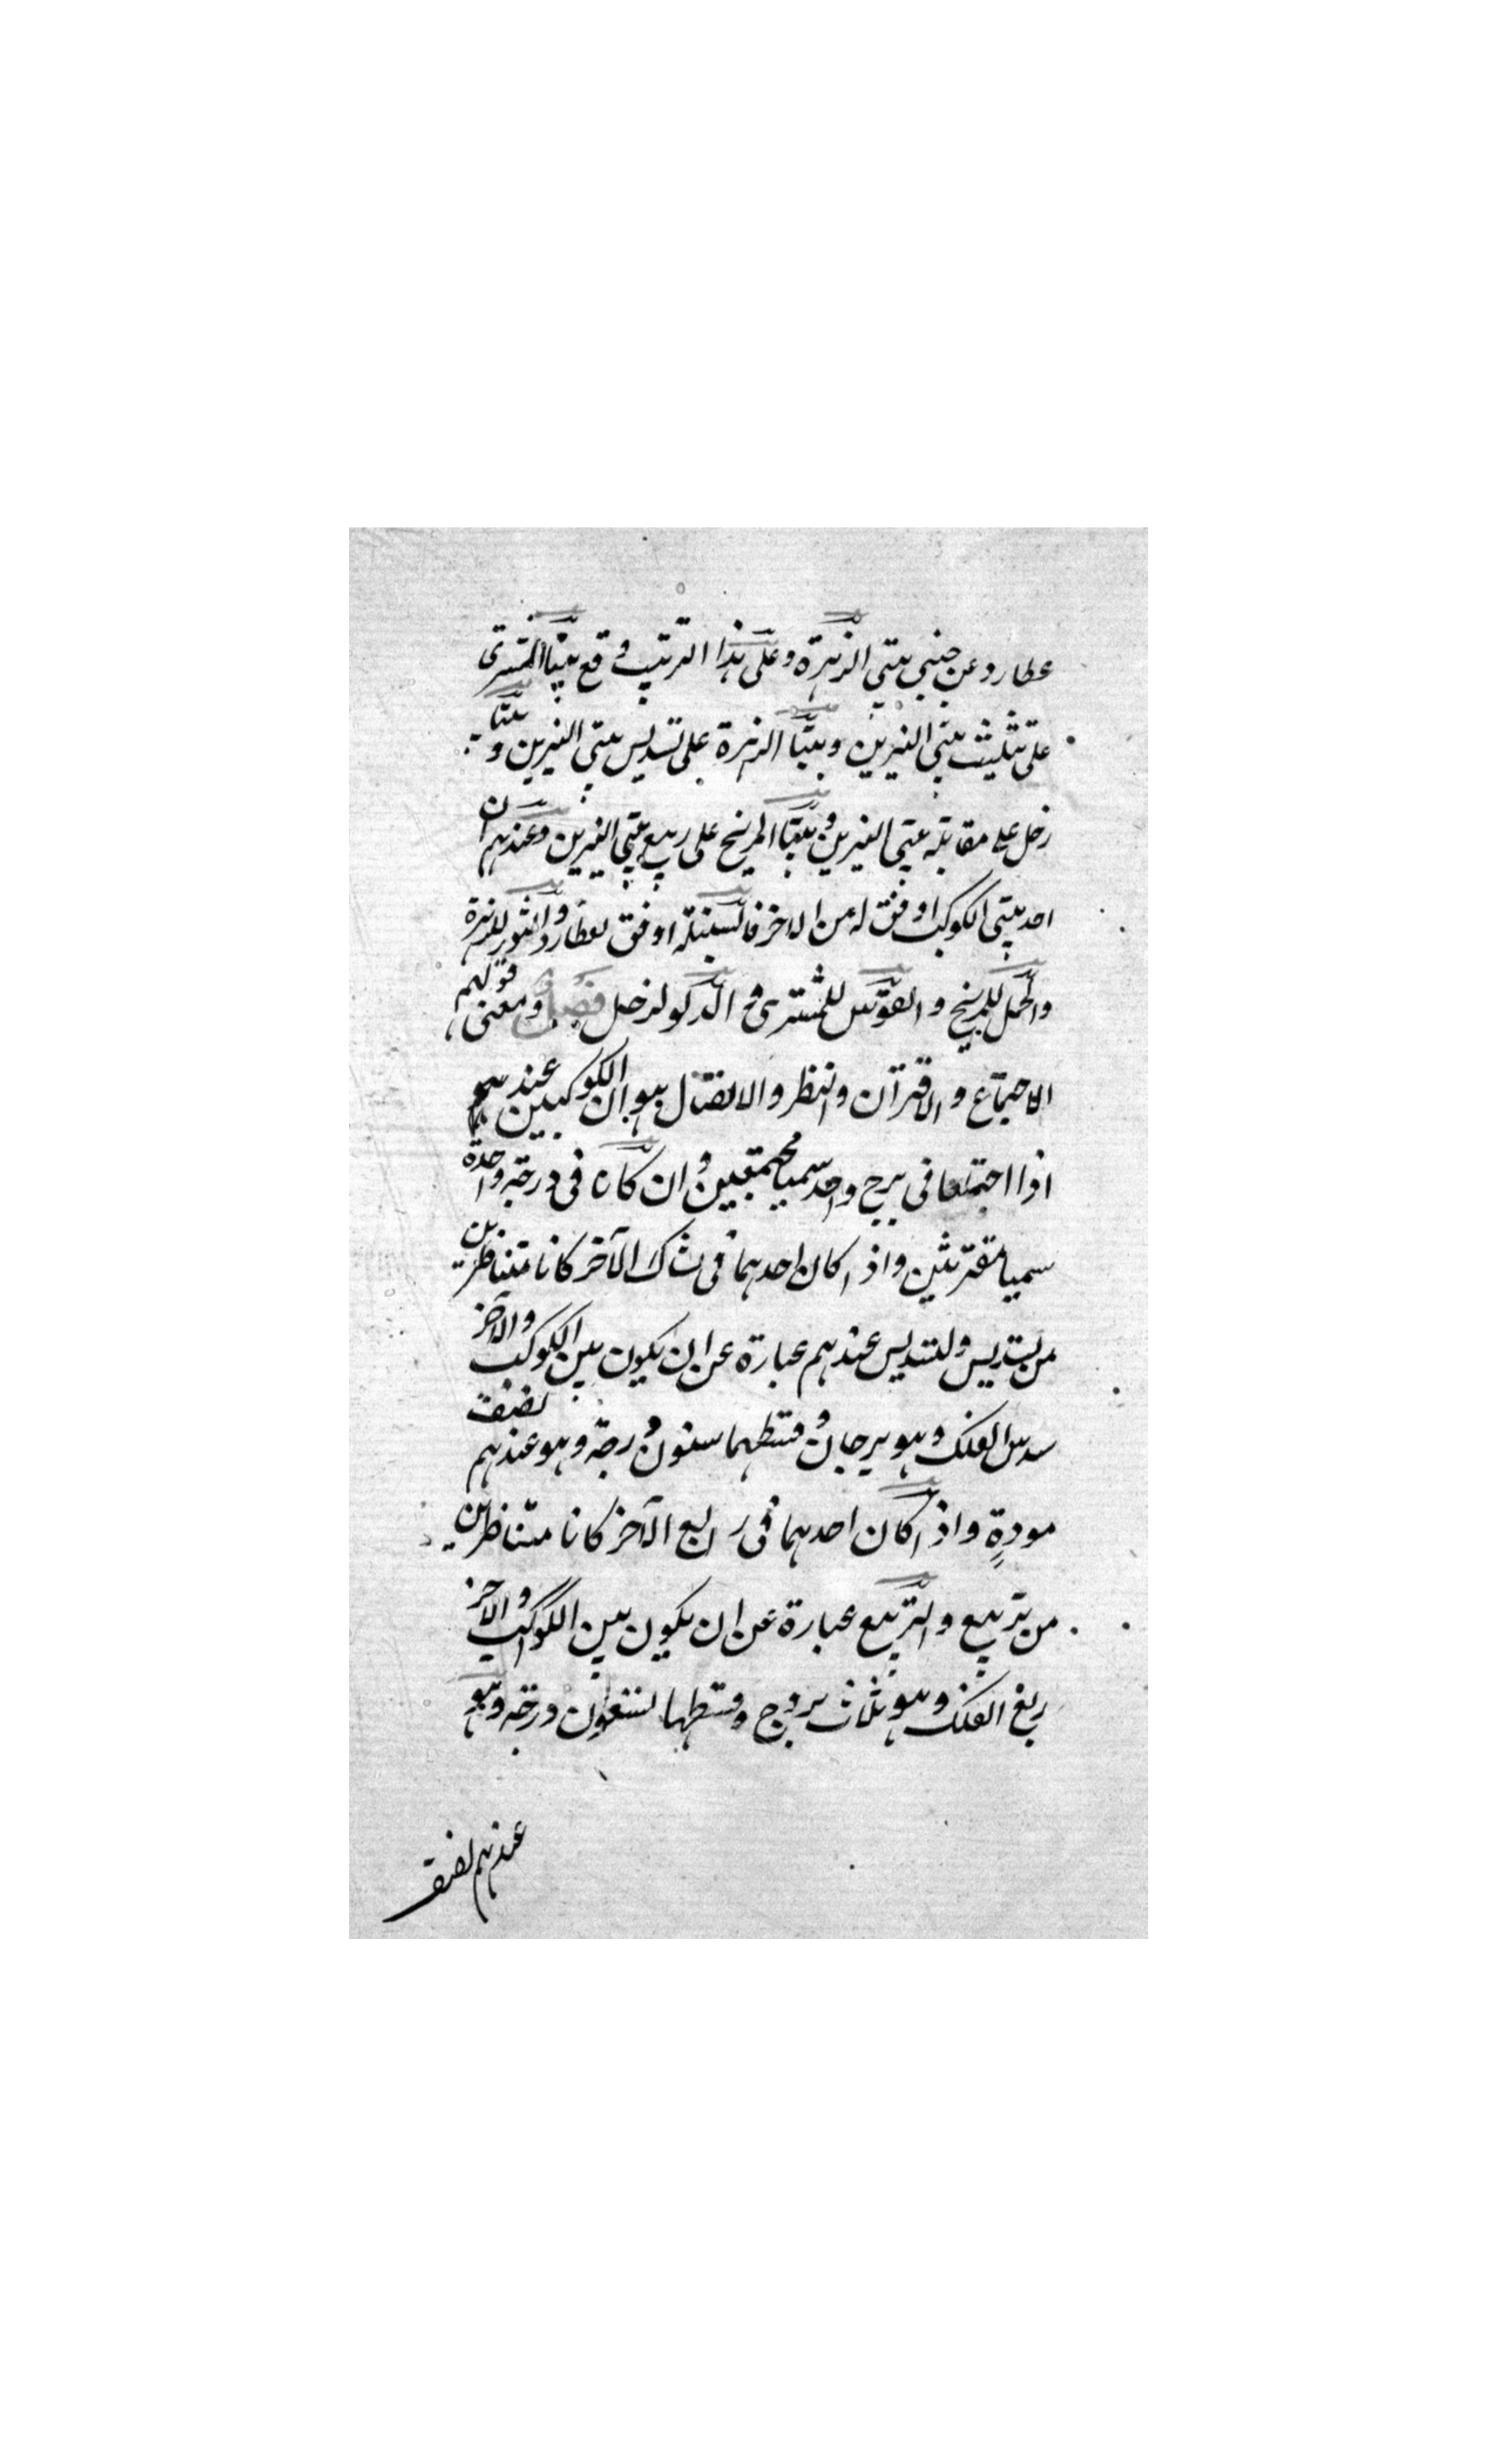 عطارد عن جنبي بيتي الزهرة وعلى هذا الترتيب وقع بيتا المشترى
على تثليث بيتي النيرين وبيتا الزهرة على تسديس بيتي النيرين وبيتا
زحل على مقابلة بيتي النيرين وبيتا المريخ على ربيع بيتي النيرين وعندهم ان
احد بيتي الكوكب اوفق له من الاخر فالسنبلة اوفق لعطارد والثور للزهرة
والحمل للمريخ والقوس للمشترى والدلو لزحل فصل ومعنى قولهم
الاجتماع والاقتران والنظر والاتصال هو ان الكوكبين عندهم
اذا اجتمعا فى برج واحد سميا مجتمعين وان كانا فى درجة واحدة
سميا مقترنين واذا كان احدهما فى ثالث الآخر كانا متناظرين
من تسديس والتسديس عندهم عبارة عن ان يكون بين الكوكب والآخر
سدس الفلك وهو برجان وقسطهما ستون درجة وهو عندهم نصف
مودة واذا كان احدهما فى رابع الآخر كانا متناظرين
من تربيع والتربيع عبارة عن ان يكون بين الكوكب والآخر
ربع الفلك وهو ثلاث بروج وقسطها تسعون درجة وهو
عندهم نصف